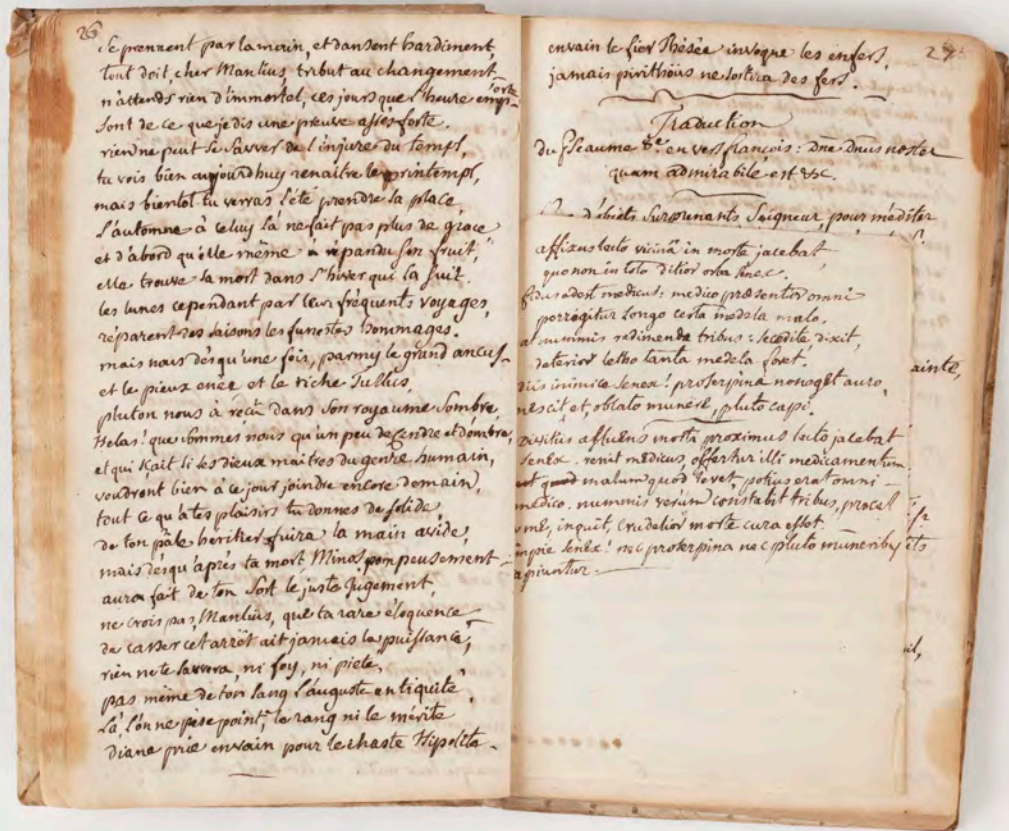 26
se prennent par la main, et dansent hardiment,
tout doit, cher Manlius, tribut au changement
n'attends rien d'immortel, ces jours que l'heure emporte
sont de ce que je dis une preuve assés forte.
rien ne peut se sauver de l'injure du temps,
tu vois bien aujourdhuy renaitre le printemps,
mais bientot tu verras l'été prendre sa place
l'automne à celuy là ne fait pas plus de grace
et d'abord qu'elle même a répandu son fruit,
elle trouve sa mort dans l'hiver qui la suit.
les lunes cependant par leurs fréquents voyages,
réparent des saisons les funestes hommages.
mais nous dès qu'une fois, parmy le grand ancus
et le pieux enée et le riche Tullus,
pluton nous à reçû dans son royaume sombre,
Helas! que sommes nous qu'un peu de cendre et d'ombre,
et qui sçait si les dieux maitres du genre humain,
voudront bien à ce jour joindre encore demain,
tout ce qu'à tes plaisirs tu donnes de solide,
de ton pâle heritier fuira la main avide,
mais dès qu'après ta mort Minos pompeusement
aura fait de ton sort le juste jugement,
ne crois pas, Manlius, que ta rare éloquence
de casser cet arrêt ait jamais la puissance,
rien ne te sauvera, ni foy, ni pieté,
pas même de ton sang l'auguste antiquité,
Là, l'on ne pèse point, le rang ni le mérite
diane prie en vain pour le chaste Hipolite.
27
en vain le fier Thésée invoque les enfers,
jamais pirithoüs ne sortira des fers.
Traduction
du pseaume 8e. en vers françois: Dne Dnus noster
quam admirabile est &c.
d'objets surprenants Seigneur, pour méditer
affixus lecto vicinâ in morte jacebat,
quo non in toto ditior orbe senex.
fidus adest medicus: medico præsentior omni
porrigitur longo certa medela malo.
at nummis redimenda tribus: secedite, dixit,
deterior letho tanta medela foret.
diis inimice senex! proserpina non eget auro,
nescit et, oblato munere, pluto capi.
Divitiis affluens morti proximus lecto jacebat
senex. venit medicus, offertur illi medicamentum
malum quod levet, potius erat omni
medico. nummis verùm constabit tribus, procul
me, inquit, crudelior morte cura esset.
impie senex! nec proserpina nec pluto muneribus
capiuntur.
ainte,